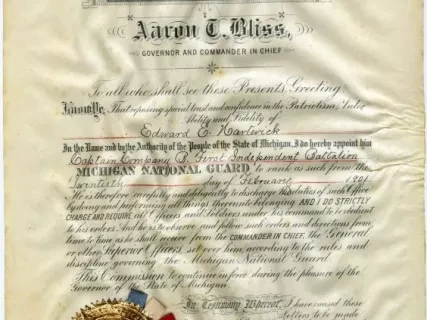 Aaron T. Bliss,
GOVERNOR AND COMMANDER IN CHIEF
To all who shall see these Presents Greeting
Know Ye, That reposing special trust and confidence in the Patriotism, Valor
Ability and Fidelity of
Edward E. Hartwick
In the Name and by the Authority of the People of the State of Michigan, I do hereby appoint him
Captain Company B, First Independent Battalion
MICHIGAN NATIONAL GUARD to rank as such from the
Twentieth day of February 1901
He is therefore carefully and diligently to discharge the duties of such Office
by doing and performing all things thereunto belonging AND I DO STRICTLY
CHARGE AND REQUIRE all Officers and Soldiers under his command to be obedient
to his orders And he is to observe and follow such orders and directions from
time to time as he shall receive from the COMMANDER IN CHIEF, The General
or other Superior Officers set over him, according to the rules and
discipline governing the Michigan National Guard.
This Commission to continue in force during the pleasure of the
Governor of the State of Michigan
In Testimony Whereof, I have caused these
Letters to be made